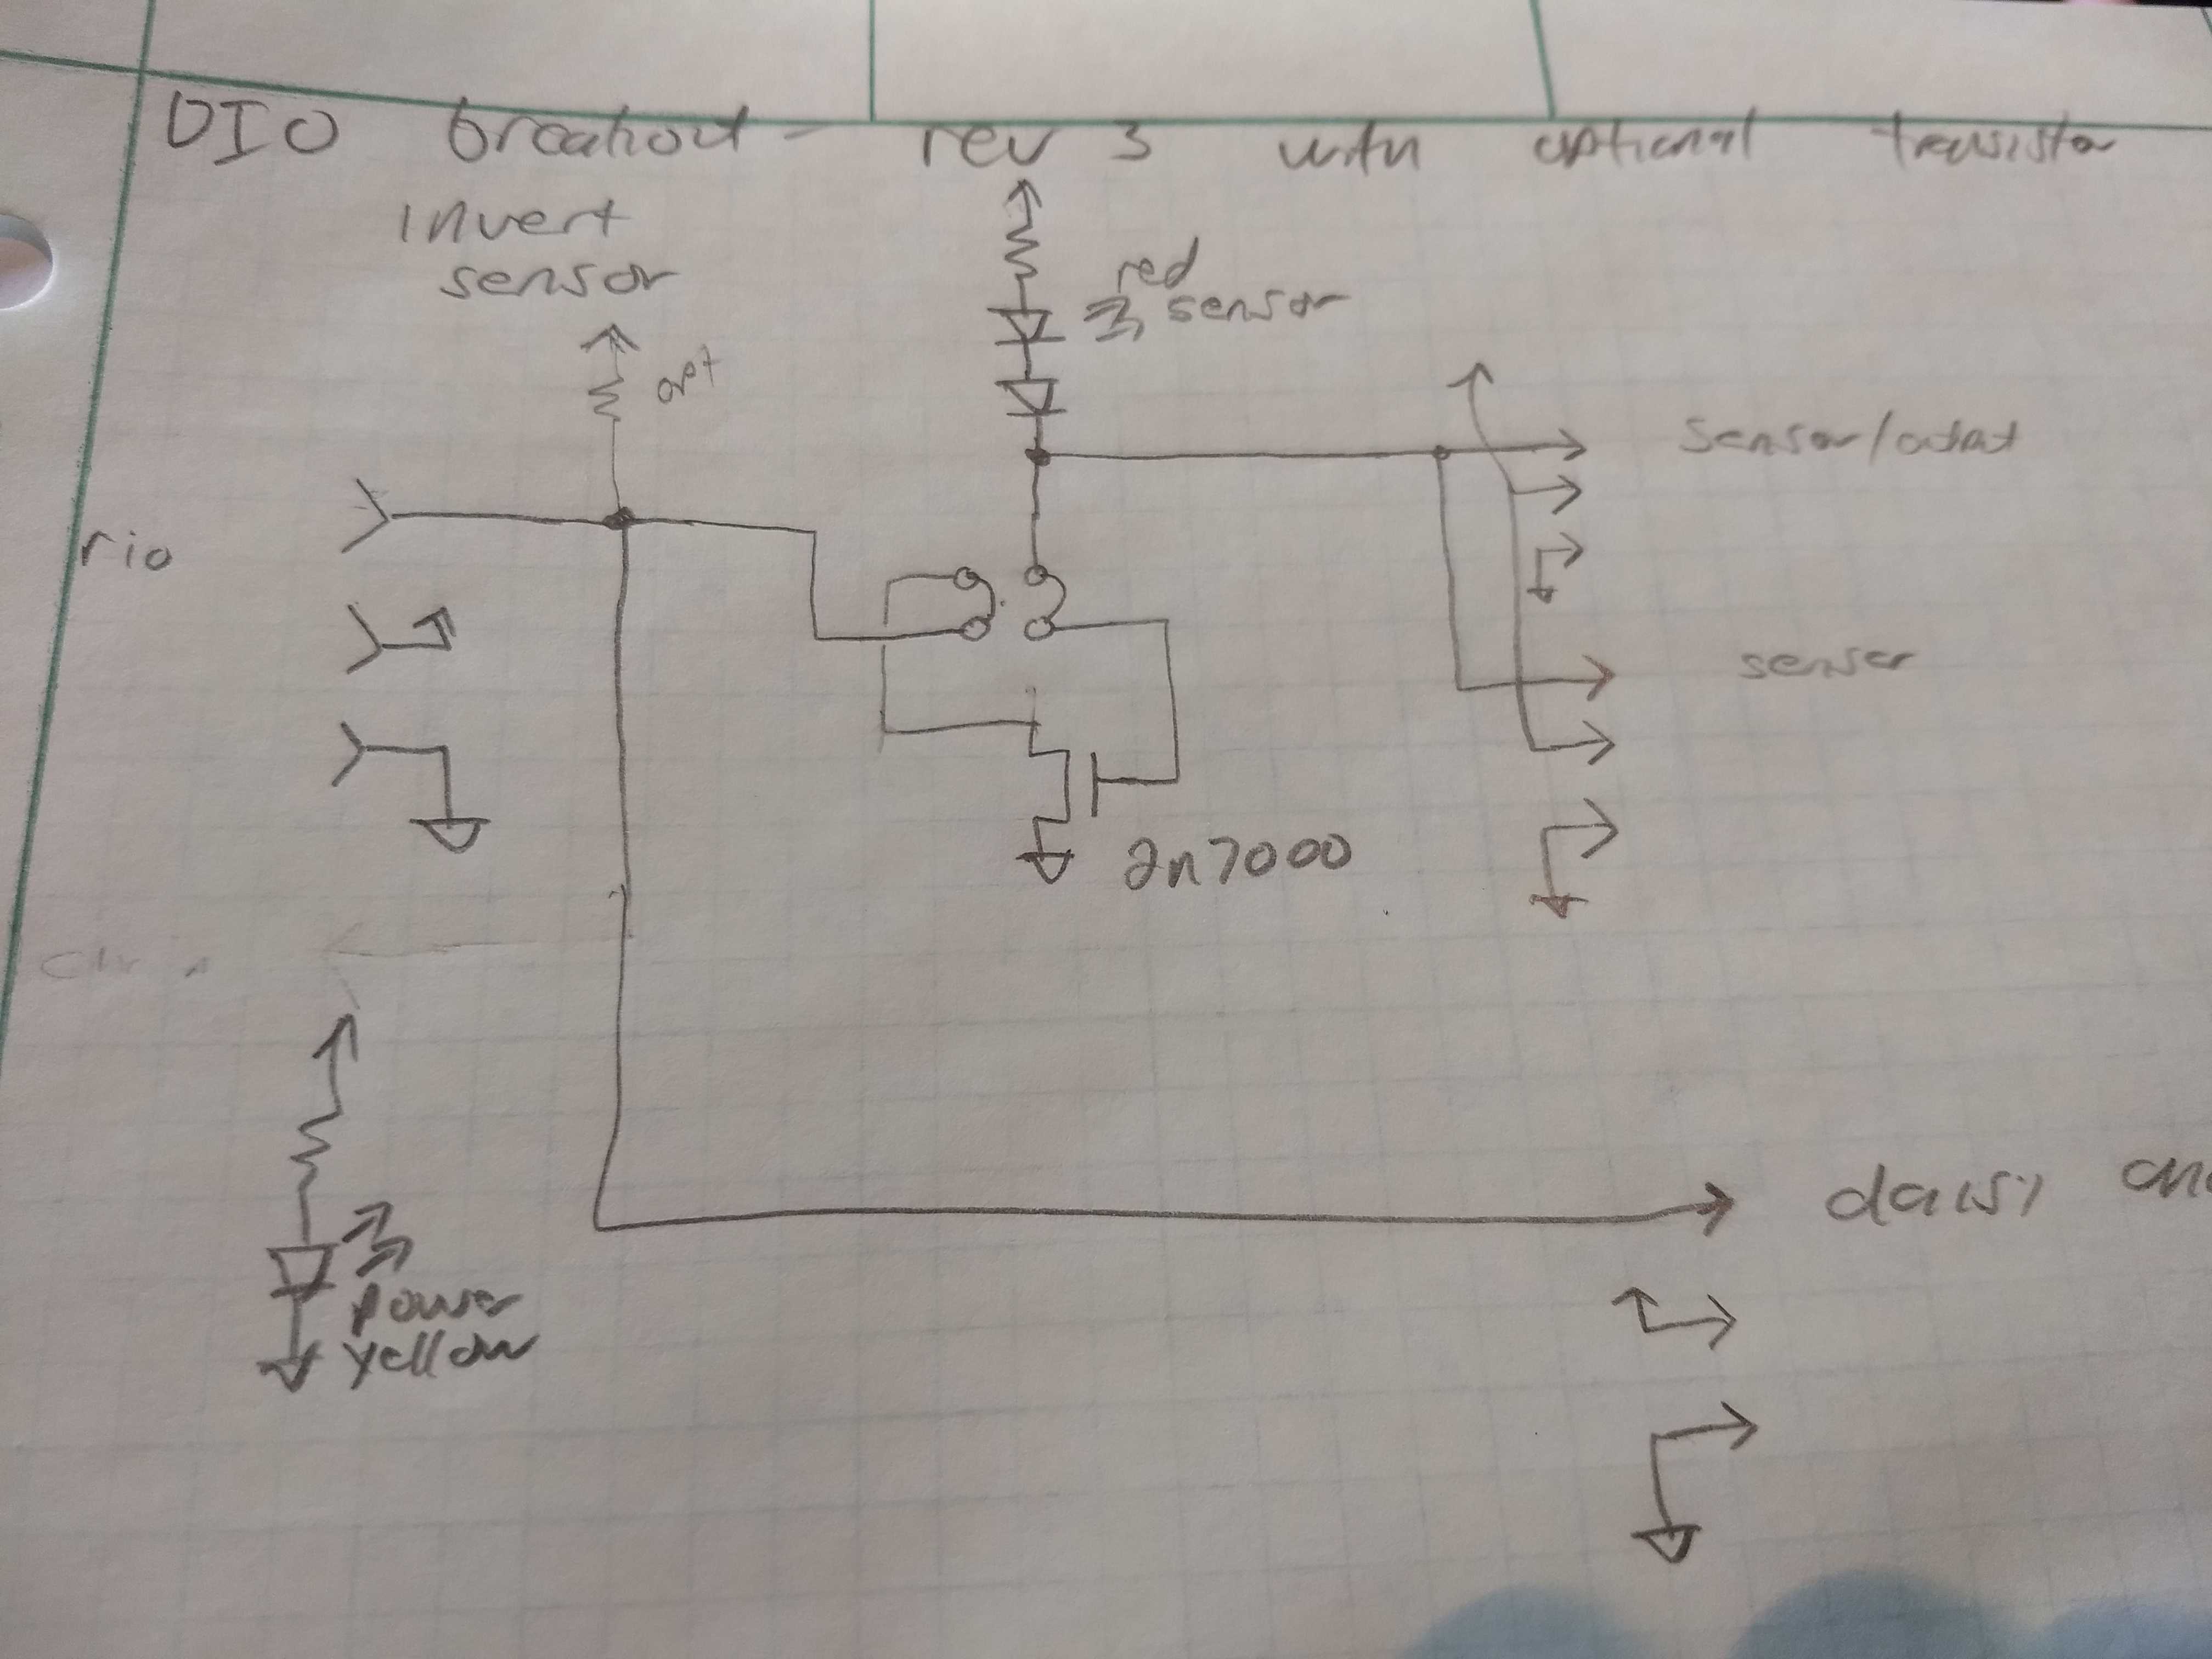 DIO breakout - rev 3 with optional transistor
invert
sensor
red
sensor
opt
sensor/output
rio
sensor
2n7000
daisy
power
yellow